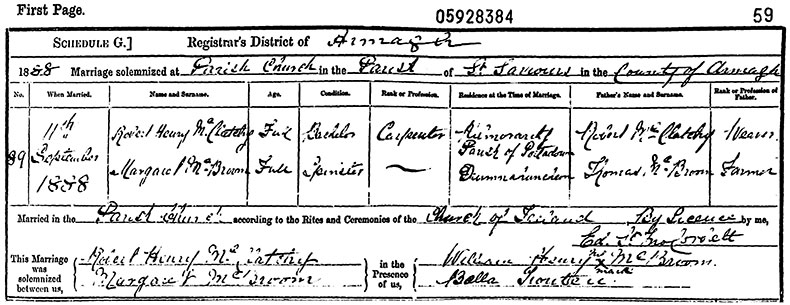 First Page. 05928384 59
SCHEDULE G.] Registrar's District of Armagh
1888 Marriage solemnized at Parish Church in the Parish of St. Saviours in the County of Armagh
No. When Married. Name and Surname. Age. Condition. Rank or Profession. Residence at the Time of Marriage. Father's Name and Surname. Rank or Profession of Father.
89 11th September 1888
Robert Henry McClatchy Full Bachelor Carpenter Parish of Portadown Robert McClatchy Weaver
Margaret McBroom Full Spinster Thomas McBroom Farmer
Married in the Parish Church according to the Rites and Ceremonies of the Church of Ireland By Licence by me,
This Marriage was solemnized between us, Robert Henry McClatchy in the Presence of us, William Henry McBroom
Margaret McBroom Bella
mark